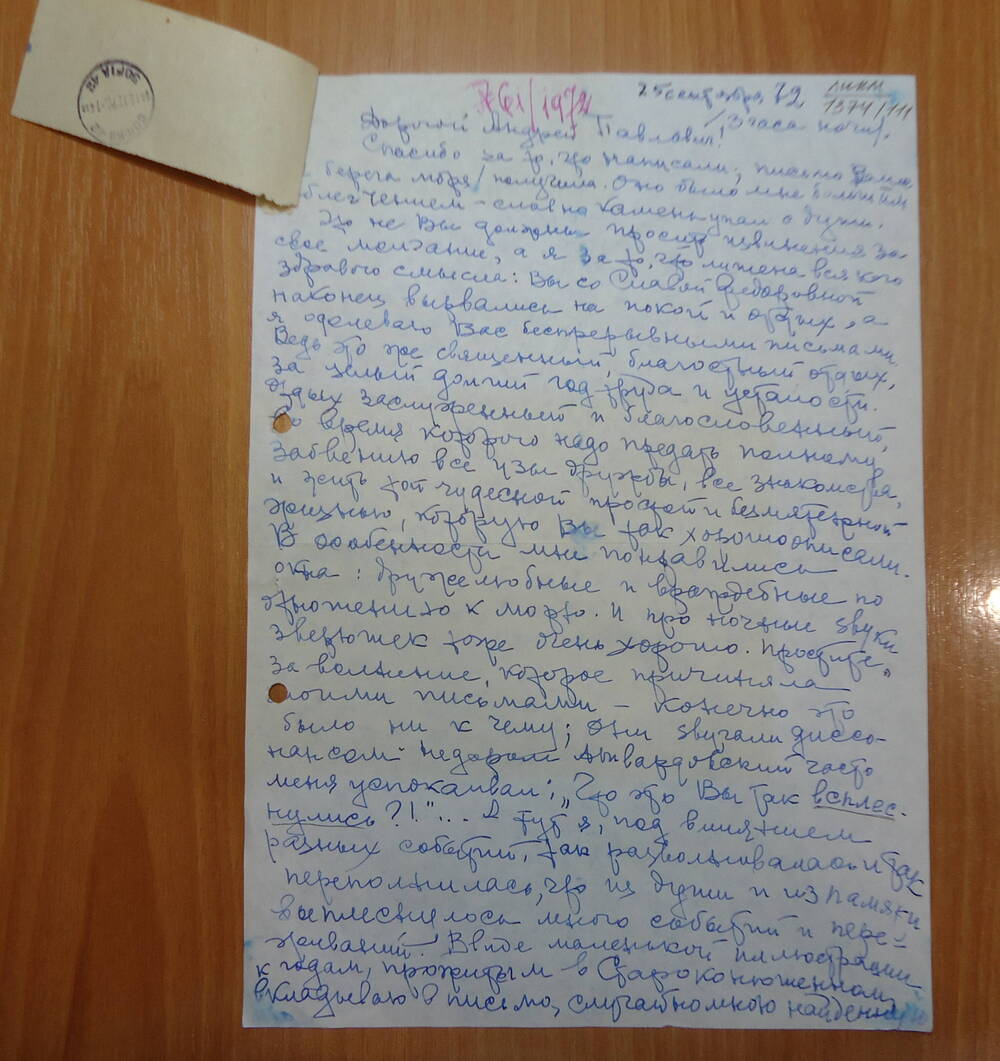 761/1972
25 сентября 72
1374/111
/3 часа ночи/.
Дорогой Андрей Павлович!
Спасибо за то, что написали; письмо Ваше
берега моря/ получила. Оно было мне большим
облегчением – словно камень упал с души.
Это не Вы должны просить извинения за
свое молчание, а я за то, что лишена всякого
здравого смысла: Вы со Славой Федоровной
наконец вырвались на покой и отдых, а
я одолеваю Вас беспрерывными письмами.
Ведь это же священный, благостный отдых,
за целый долгий год труда и усталости.
Отдых заслуженный и благословенный,
во время которого надо предать полному
забвению все узы дружбы, все знакомства,
и жить той чудесной простой и безмятежной
жизнью, которую Вы так хорошо описали.
В особенности мне понравились
окна: дружелюбные и враждебные по
отношению к морю. И про ночные звуки
тоже очень хорошо. Простите,
за волнение, которое причиняла
моими письмами – конечно это
было ни к чему; они звучали диссо-
нансом. Недаром Твардовский часто
меня успокаивал: „Что это Вы так всплес-
нулись?!"... А тут я, под влиянием
разных событий, так разволновалась и так
переполнилась, что из души и из памяти
выплеснулось много событий и пере-
живаний. В виде маленькой иллюстрации
к годам, прожитым в Староконюшенном,
вкладываю в письмо, случайно мною найденную